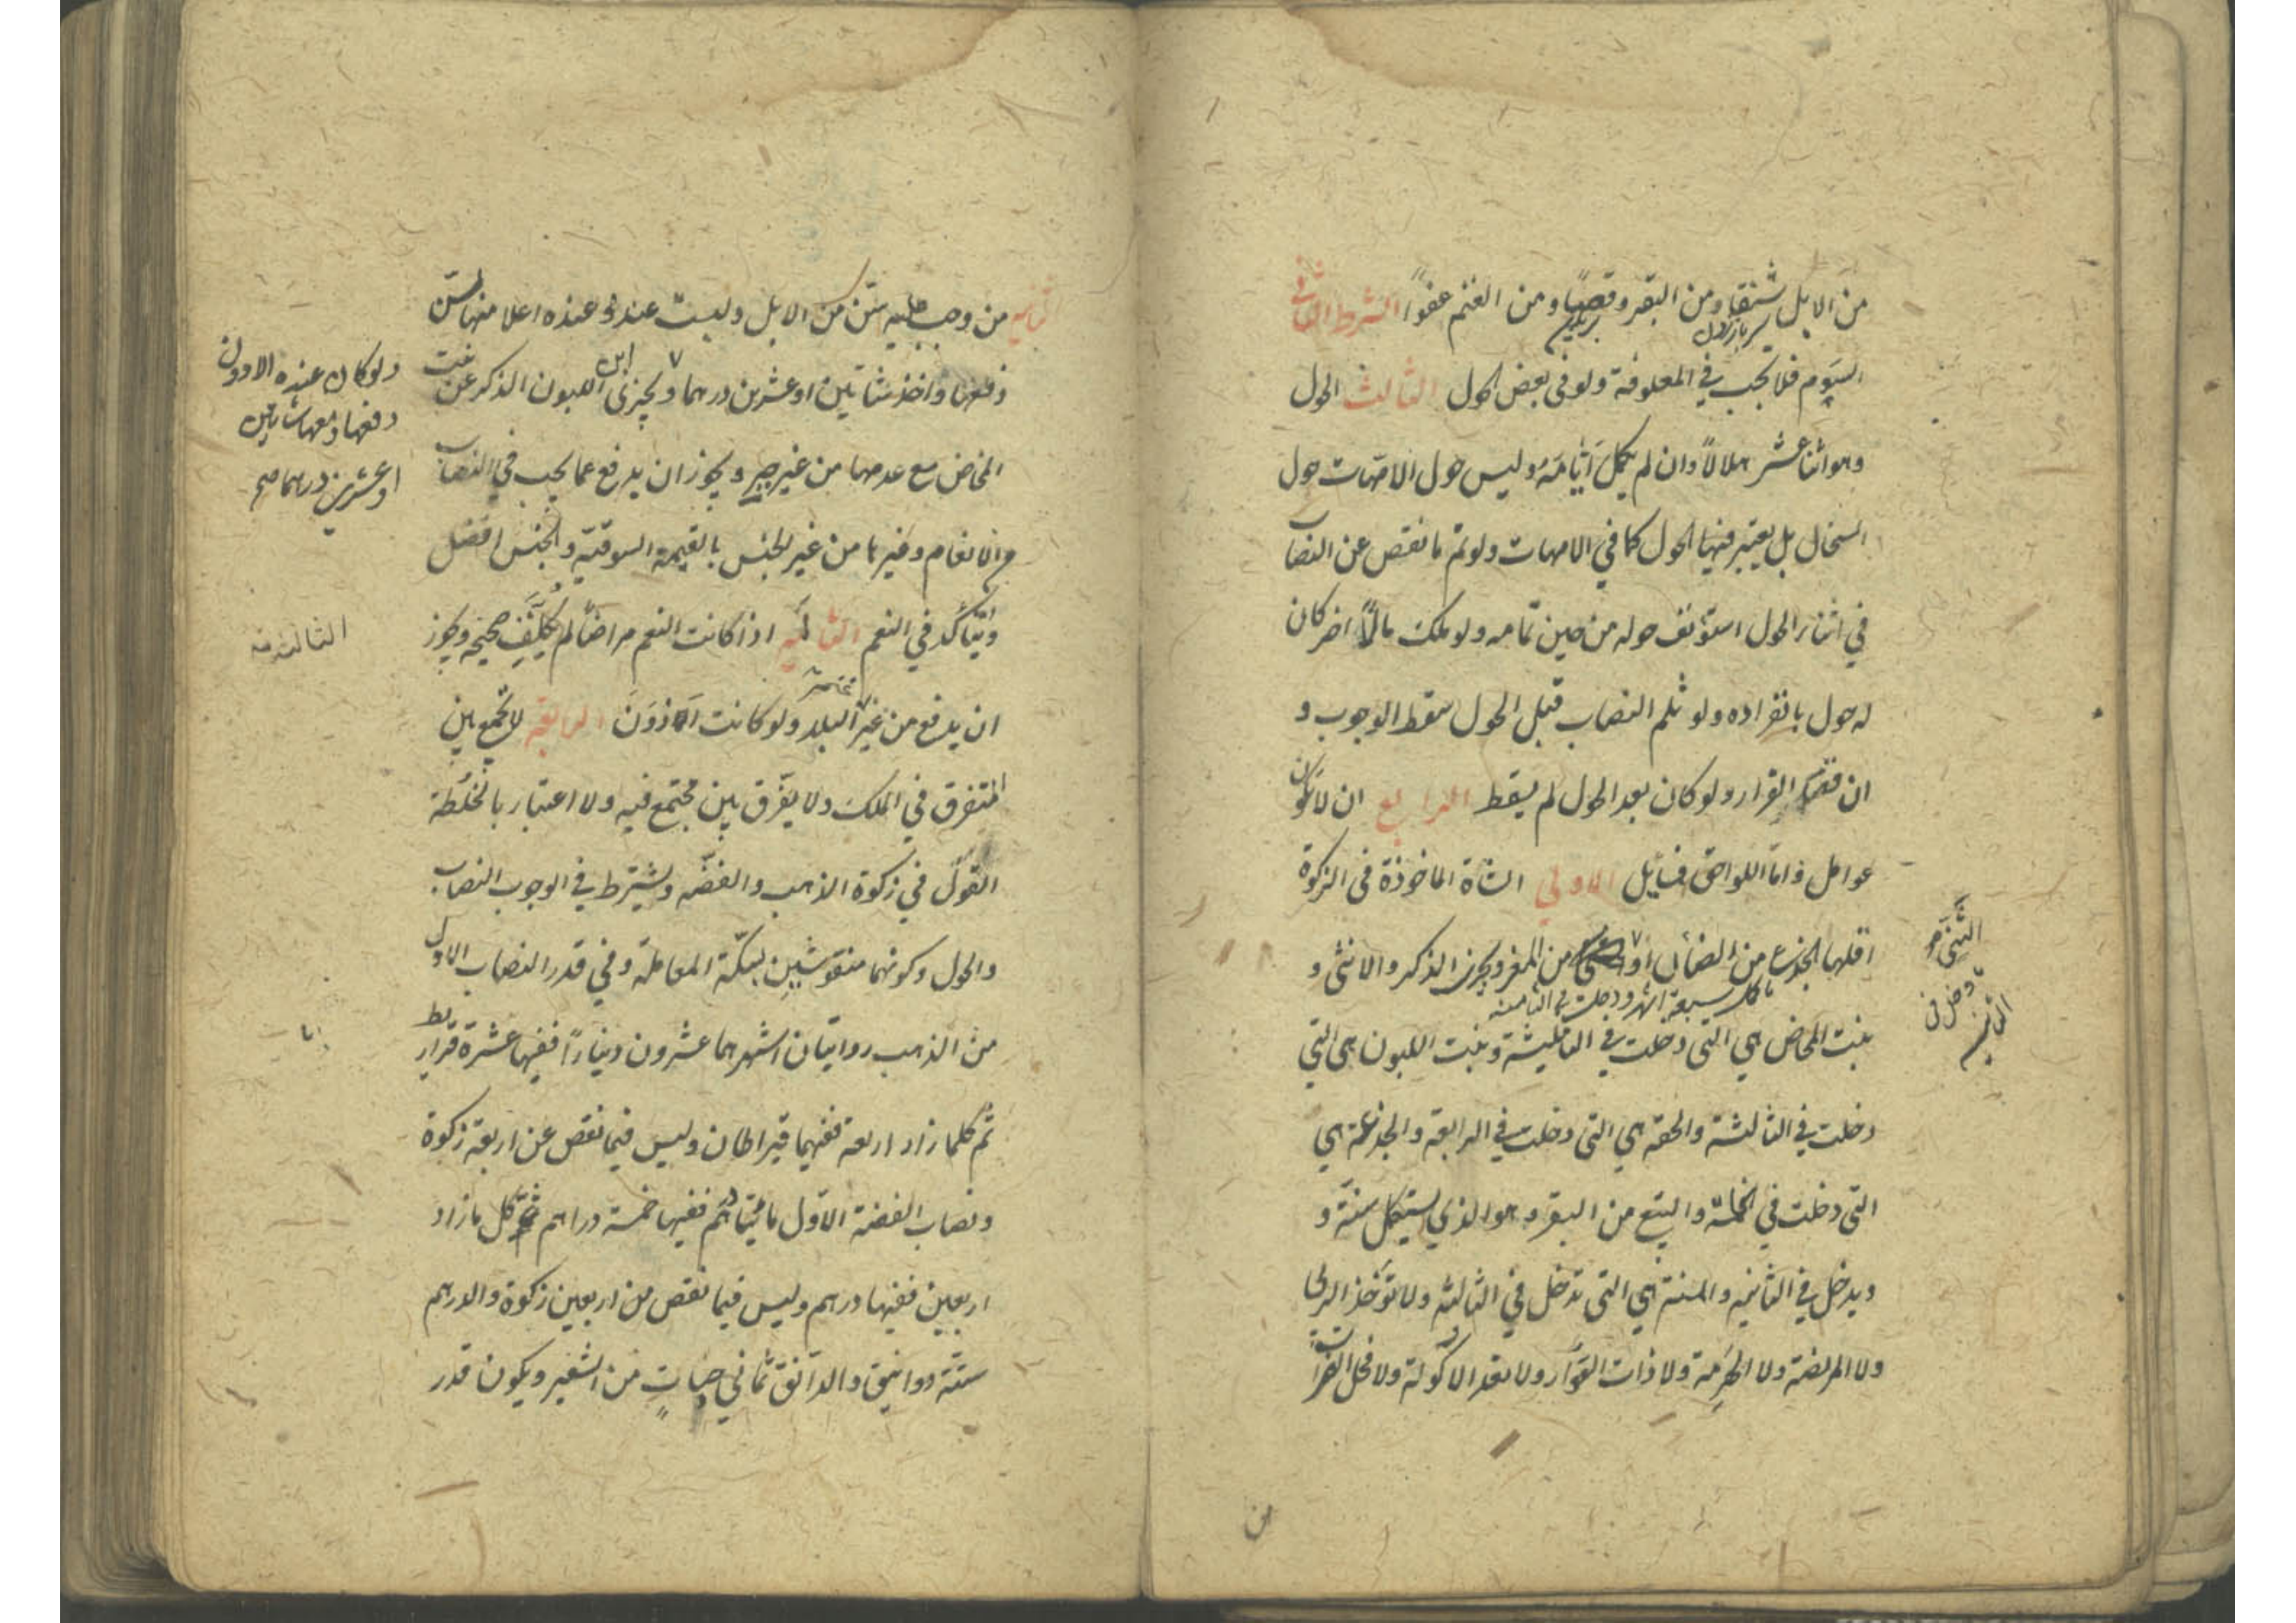 من الابل شنقا ومن البقر وقصا ومن الغنم عفوا الشرط الثاني
السوم فلا يجب في المعلوفة ولو في بعض الحول الثالث الحول
وهو اثنا عشر هلالا وان لم يكمل ايامه وليس حول الامهات حول
السخال بل يعتبر فيها الحول كما في الامهات ولو تم ما نقص عن النصاب
في اثناء الحول استونف حوله من حين تمامه ولو ملك مالا اخر كان
له حول بانفراده ولو ثلم النصاب قبل الحول سقط الوجوب و
ان قصد الفرار ولو كان بعد الحول لم يسقط الرابع ان لا تكون
عوامل واما اللواحق فمسايل الاولى الشاة الماخوذة في الزكوة
اقلها الجذع من الضان او من المعز ويجزي الذكر والانثى و
ما كمل سبعة اشهر ودخلت في الثامنة
الثني
ودخل في
الثانية
بنت المخاض هي التي دخلت في الثانية وبنت اللبون هي التي
دخلت في الثالثة والحقة هي التي دخلت في الرابعة والجذعة هي
التي دخلت في الخامسة والتبيع من البقر هو الذي يستكمل سنة و
ويدخل في الثانية والمسنة هي التي تدخل في الثالثة ولا تؤخذ الربى
ولا المريضة ولا الهرمة ولا ذات العوار ولا تعد الاكولة ولا فحل الضراب
من
الثانية من وجب عليه سن من الابل وليست عنده وعنده اعلا منها بسن
دفعها واخذ شاتين او عشرين درهما ويجزى ابن اللبون الذكر عن بنت
ولو كان عنده الادون
دفعها ومعها شاتين
او عشرين درهما صح
المخاض مع عدمها من غير جبر ويجوز ان يدفع عما يجب في النصاب
من الانعام وغيرها من غير الجنس بالقيمة السوقية والجنس افضل
ويتأكد في النعم الثالثة اذا كانت النعم مراضا لم يكلف صحيحة ويجوز
الثالثة
ان يدفع من غير غنم البلد ولو كانت ادون الرابعة لا يجمع بين
المتفرق في الملك ولا يفرق بين مجتمع فيه ولا اعتبار بالخلطة
القول في زكوة الذهب والفضة ويشترط في الوجوب النصاب
والحول وكونهما منقوشين بسكة المعاملة وفي قدر النصاب الاول
من الذهب روايتان اشهرهما عشرون دينارا ففيها عشرة قراريط
ثم كلما زاد اربعة ففيهما قيراطان وليس فيما نقص عن اربعة زكوة
ونصاب الفضة الاول مائتا درهم ففيها خمسة دراهم ثم كل ما زاد
اربعين ففيها درهم وليس فيما نقص من اربعين زكوة والدرهم
ستة دوانيق والدانق ثماني حبات من الشعير ويكون قدر